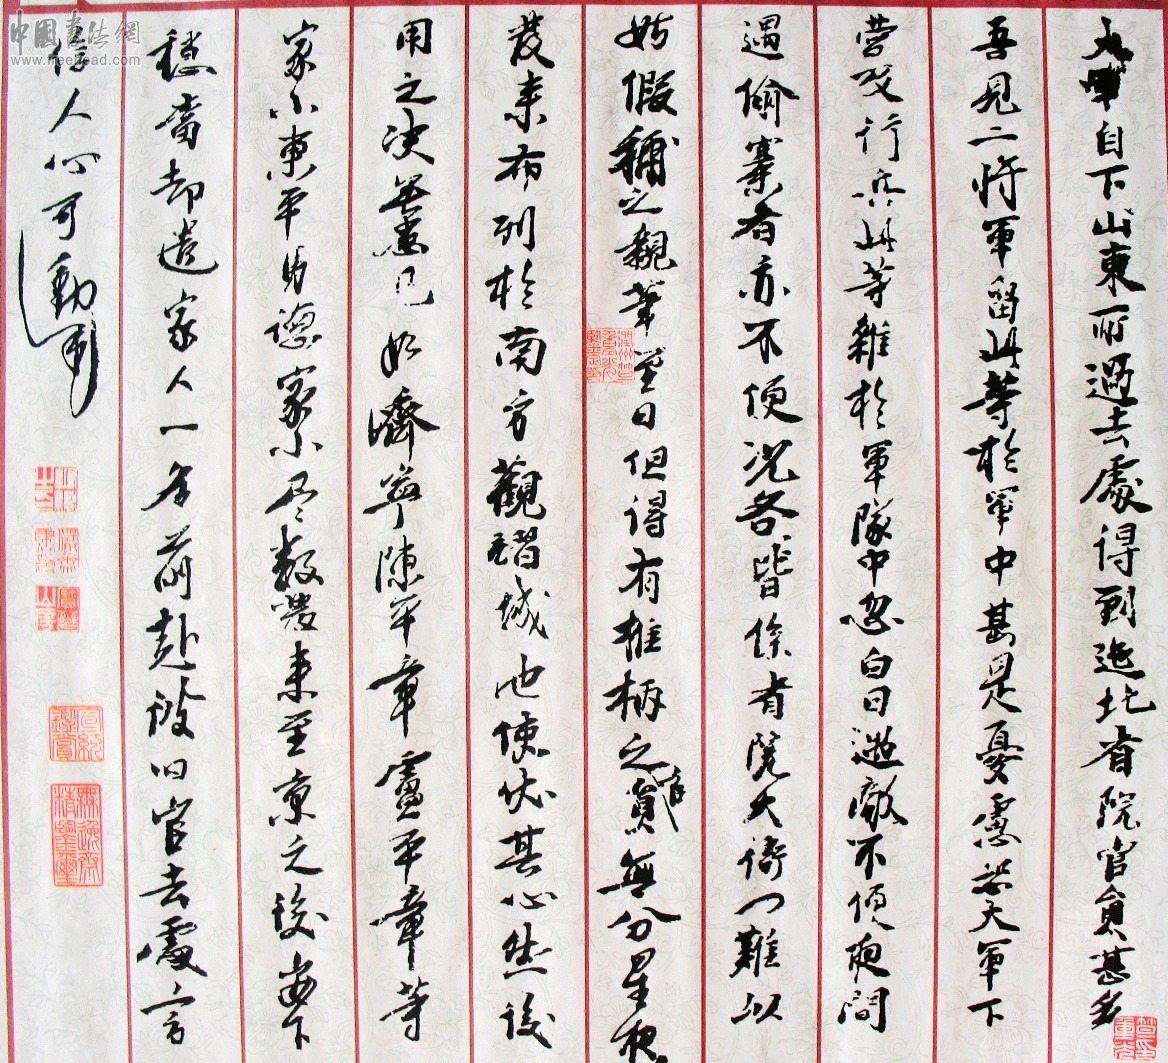 大軍自下山東所過去處得到迤北省院官員甚多
吾見二將軍留此等於軍中甚是憂慮恐大軍下
營及行兵此等雜於軍隊中忽白日遇敵不便夜間
遇偷寨者亦不便況各各皆係省院大衙門難以
姑假補之親筆至日但得有椎柄之官員無分星夜
發來布列於南方觀習城池使伏其心然後
用之決無患已如濟寧陳平章盧平章等
家小東平馬德家小尽數發來至京之後安下
穩當却遣家人一名前赴彼旧官去處言
信人心可動
中國書法網
www.freehead.com